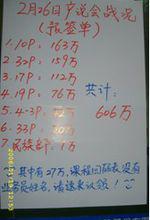 2月26日产说会战况
(预签单)
1. 10P: 163万
2. 32P: 159万
3. 17P: 112万
4. 19P: 76万 共计:
5. 4-3P: 万 606万
6. 33P: 万
7. 民族部: 1万
其中有27万,课程回函表没有
员姓名,请速来认领!